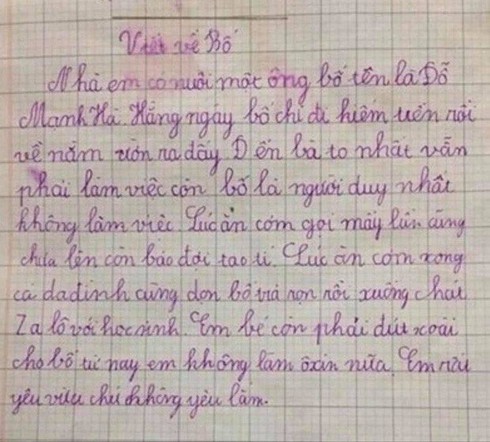 Viết về Bố
Nhà em có nuôi một ông bố tên là Đỗ
Mạnh Hà. Hằng ngày bố chỉ đi kiếm tiền rồi
về nằm ườn ra đấy Đến bà to nhất vẫn
phải làm việc còn bố là người duy nhất
không làm việc. Lúc ăn cơm gọi mấy lần cũng
chưa lên còn bảo đợi tao tí. Lúc ăn cơm xong
cả da đình cũng dọn bố trả rọn rồi xuống chát
Za lô với học sinh. Em bé còn phải đút xoài
cho bố từ nay em không làm ôxin nữa. Em rất
yêu vừa chứ không yêu lắm.